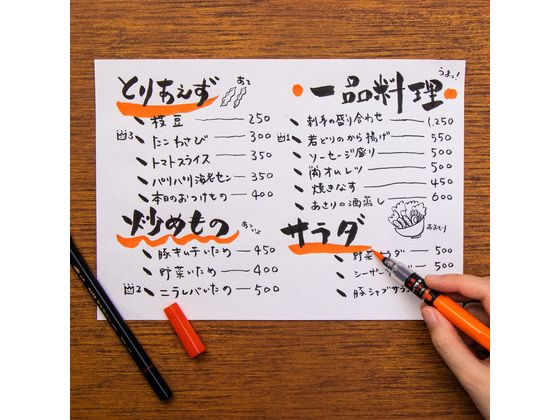 とりあえず
あて
枝豆 250
👑3 たこわさび 300
トマトスライス 350
パリパリ海老セン 350
本日のおつけもの 400
炒めもの
あつ いよ
豚キムチいため 450
野菜いため 400
👑2 ニラレバいため 500
うまっ!
一品料理
刺身の盛り合わせ 1,250
👑1 若どりのから揚げ 550
ソーセージ盛り 500
オムレツ 500
焼きなす 450
あさりの酒蒸し 600
サラダ
野菜 ダ 500
シーザー 500
豚シャブサラ